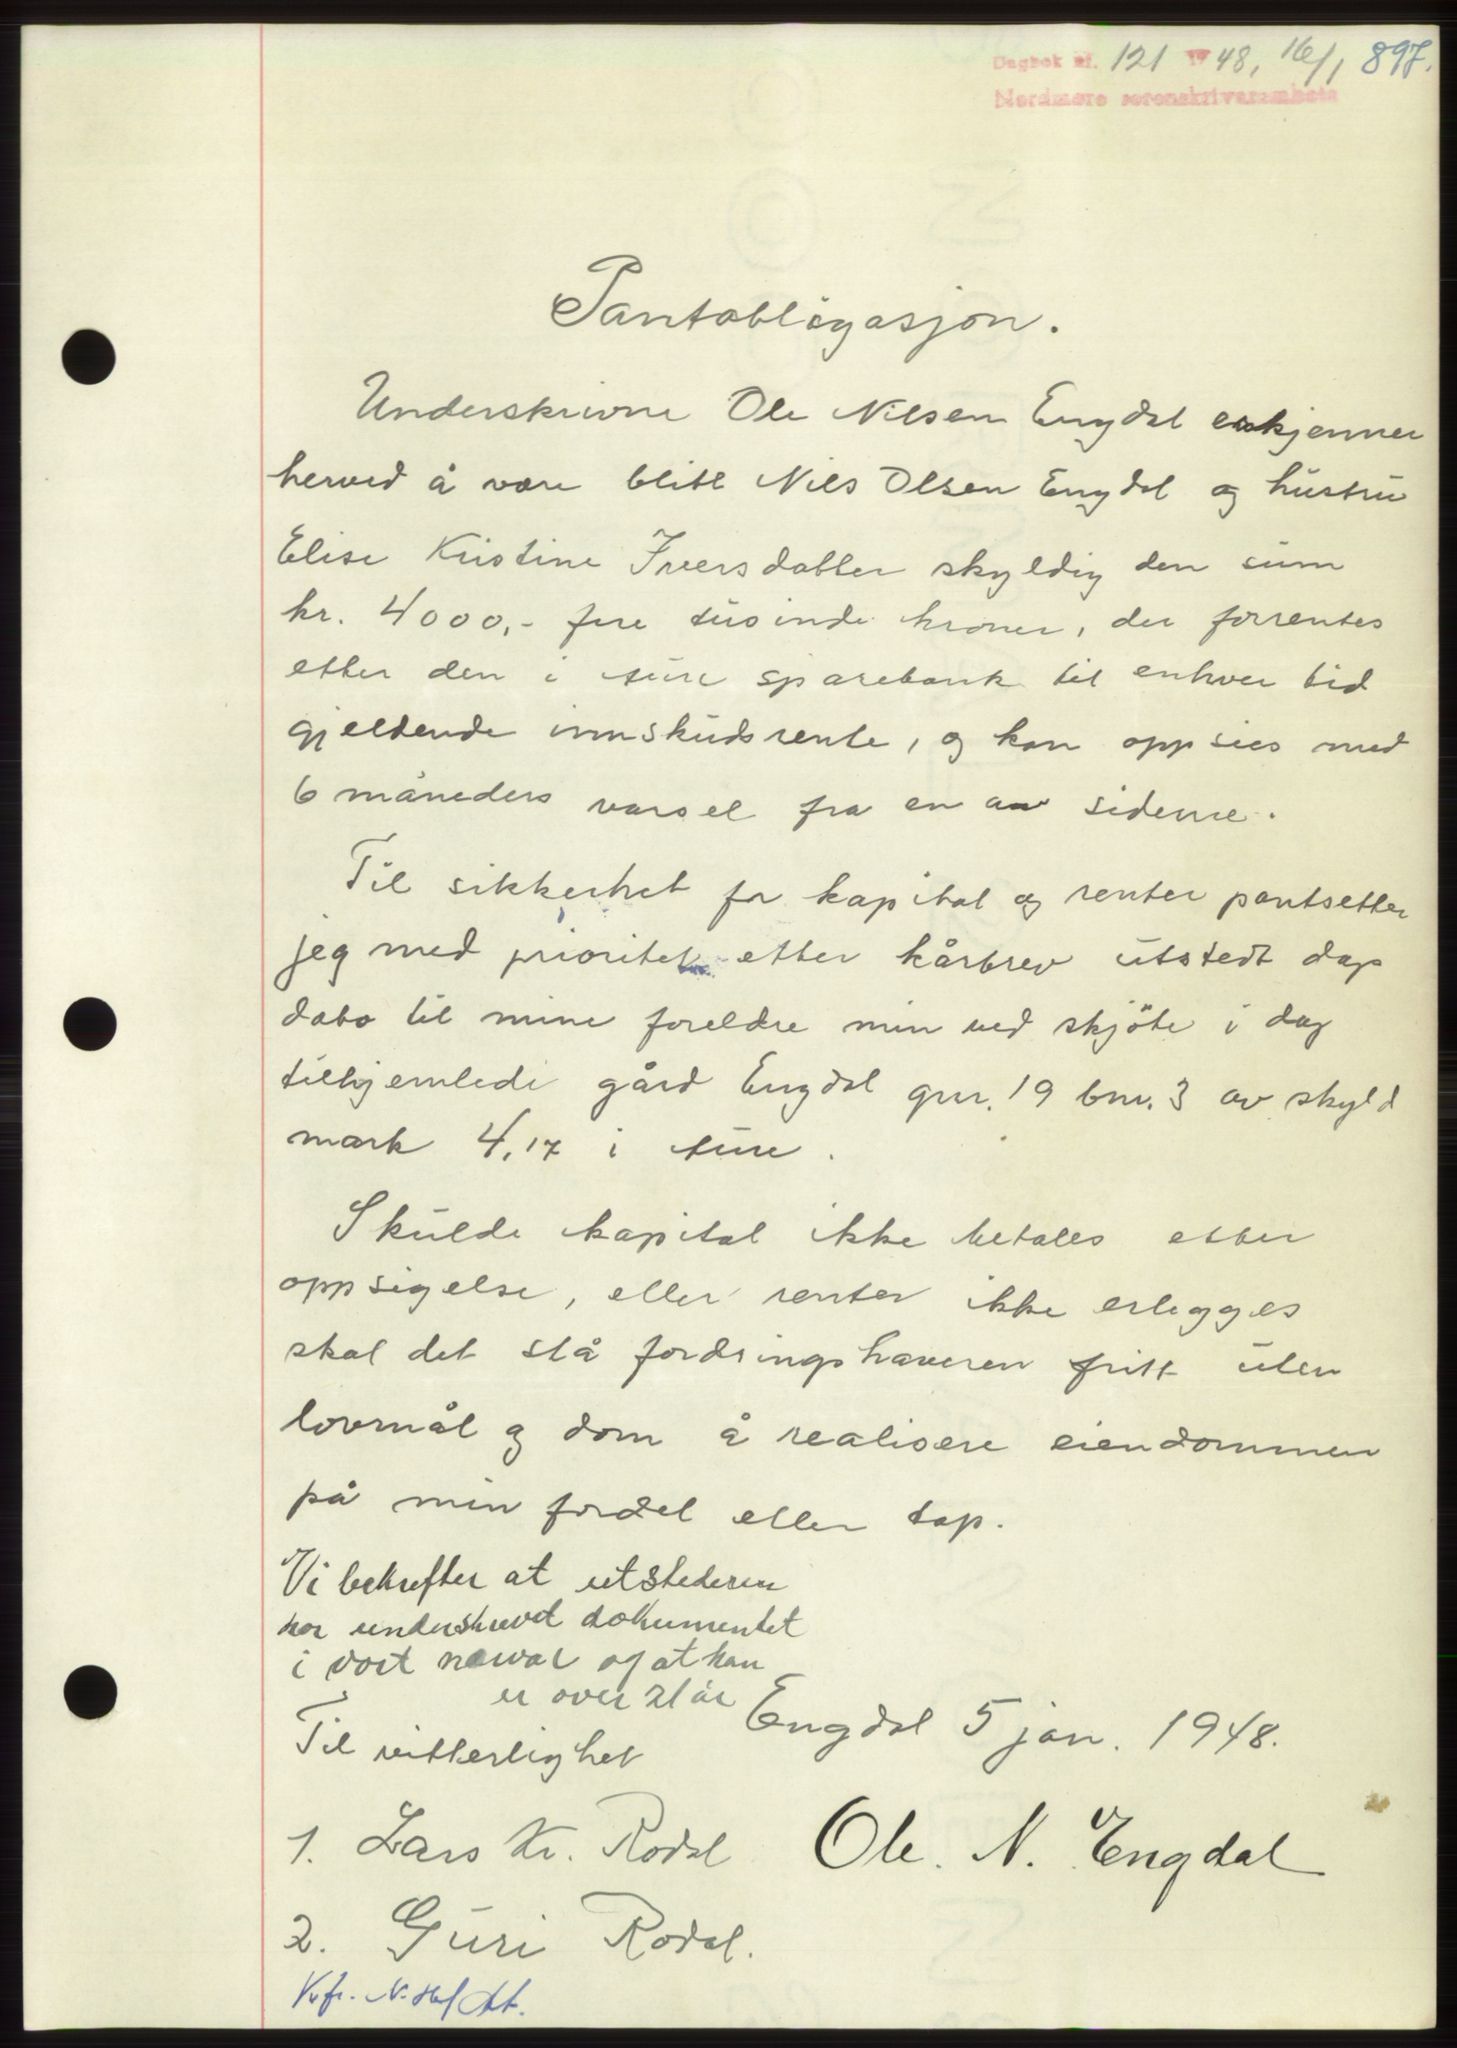 Dagbok nr. 121 1948, 16/1 897.
Nordmøre sorenskrivarembete
Pantobligasjon.
Underskrivne Ole Nilsen Engdal erkjenner
herved å være blitt Nils Olsen Engdal og hustru
Elise Kristine Iversdatter skyldig den sum
kr. 4000,- fire tusinde kroner, der forrentes
etter den i sure sparebank til enhver tid
gjeldende innskudsrente, og kan oppsies med
6 måneders varsel fra en av siderne.
Til sikkerhet for kapital og renter pantsetter
jeg med prioritet etter kårbrev utstedt dags
dato til mine foreldre min ved skjöte i dag
tilhjemlede gård Engdal gnr. 19 bnr. 3 av skyld
mark 4,17 i sure.
Skulde kapital ikke betales etter
oppsigelse, eller renter ikke erlegges
skal det stå fordringshaveren fritt uten
lovmål og dom å realisere eiendommen
på min fordel eller tap.
Vi bekrefter at utstederen
har underskrevet dokumentet
i vort nærvær og at han
er over 21 år
Engdal 5 jan. 1948.
Til vitterlighet
1. Lars Kr. Rodal Ole. N. Engdal
2. Guri Rodal.